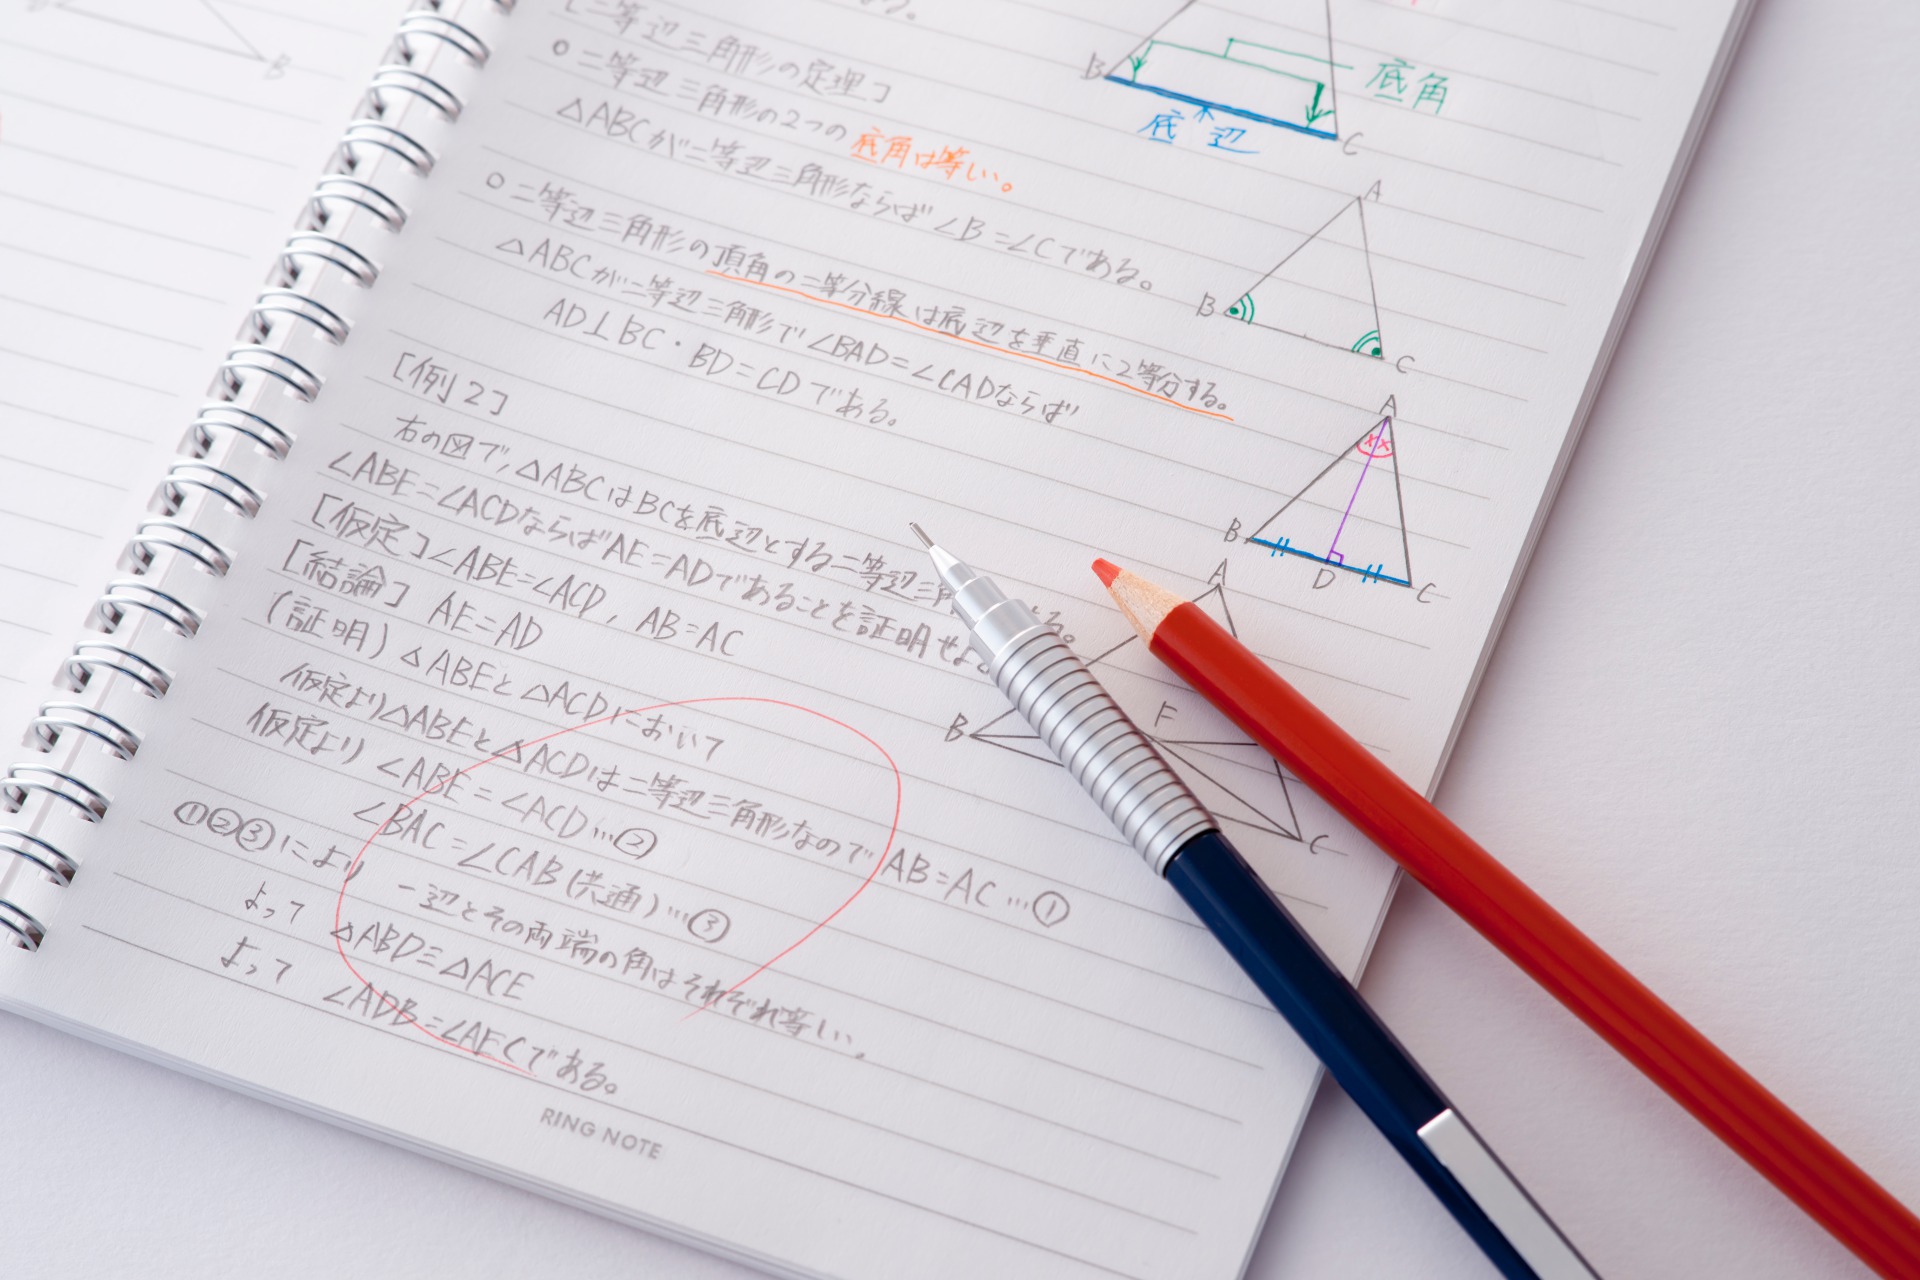 [二等辺三角形の定理]
○二等辺三角形の2つの底角は等しい。
△ABCが二等辺三角形ならば∠B=∠Cである。
○二等辺三角形の頂角の二等分線は底辺を垂直に2等分する。
△ABCが二等辺三角形で∠BAD=∠CADならば
AD⊥BC・BD=CDである。
[例2]
右の図で,△ABCはBCを底辺とする二等辺三
る。
∠ABE=∠ACDならばAE=ADであることを証明せよ
[仮定]∠ABE=∠ACD, AB=AC
[結論] AE=AD
(証明) △ABEと△ACDにおいて
仮定より△ABEと△ACDは二等辺三角形なので AB=AC…①
仮定より ∠ABE=∠ACD…②
∠BAC=∠CAB(共通)…③
①②③により 一辺とその両端の角はそれぞれ等しい。
よって △ABD≡△ACE
よって ∠ADB=∠AECである。
RING NOTE
B
B
C
底角
底辺
A
B
C
A
B
D
C
A
B
F
C